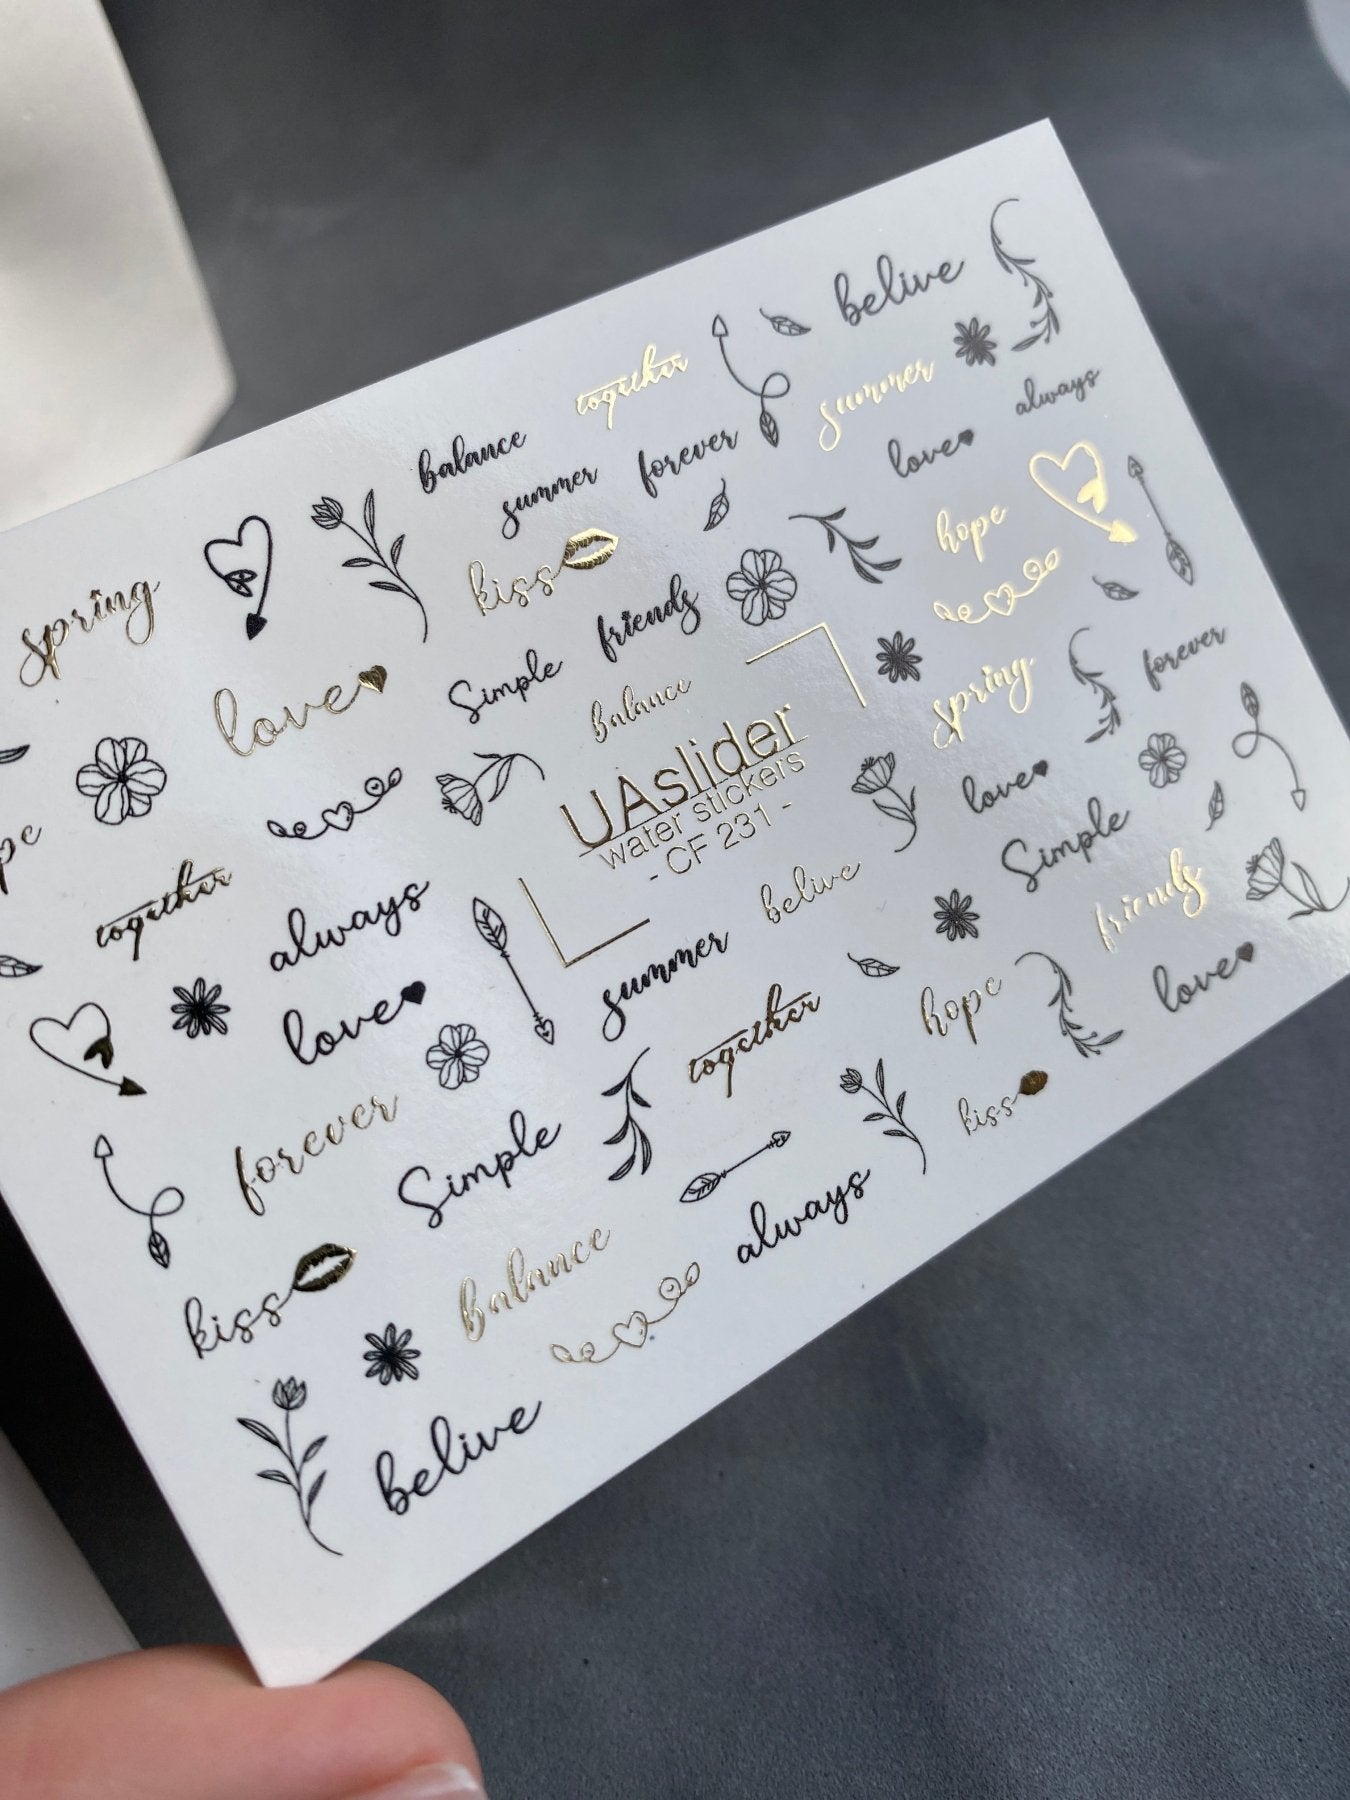 together
belive
balance
summer
forever
summer
love
always
spring
kiss
hope
love
Simple
friends
balance
spring
forever
UAslider
water stickers
- CF 231 -
love
Simple
together
always
belive
friends
love
summer
hope
love
together
forever
Simple
kiss
kiss
balance
always
belive